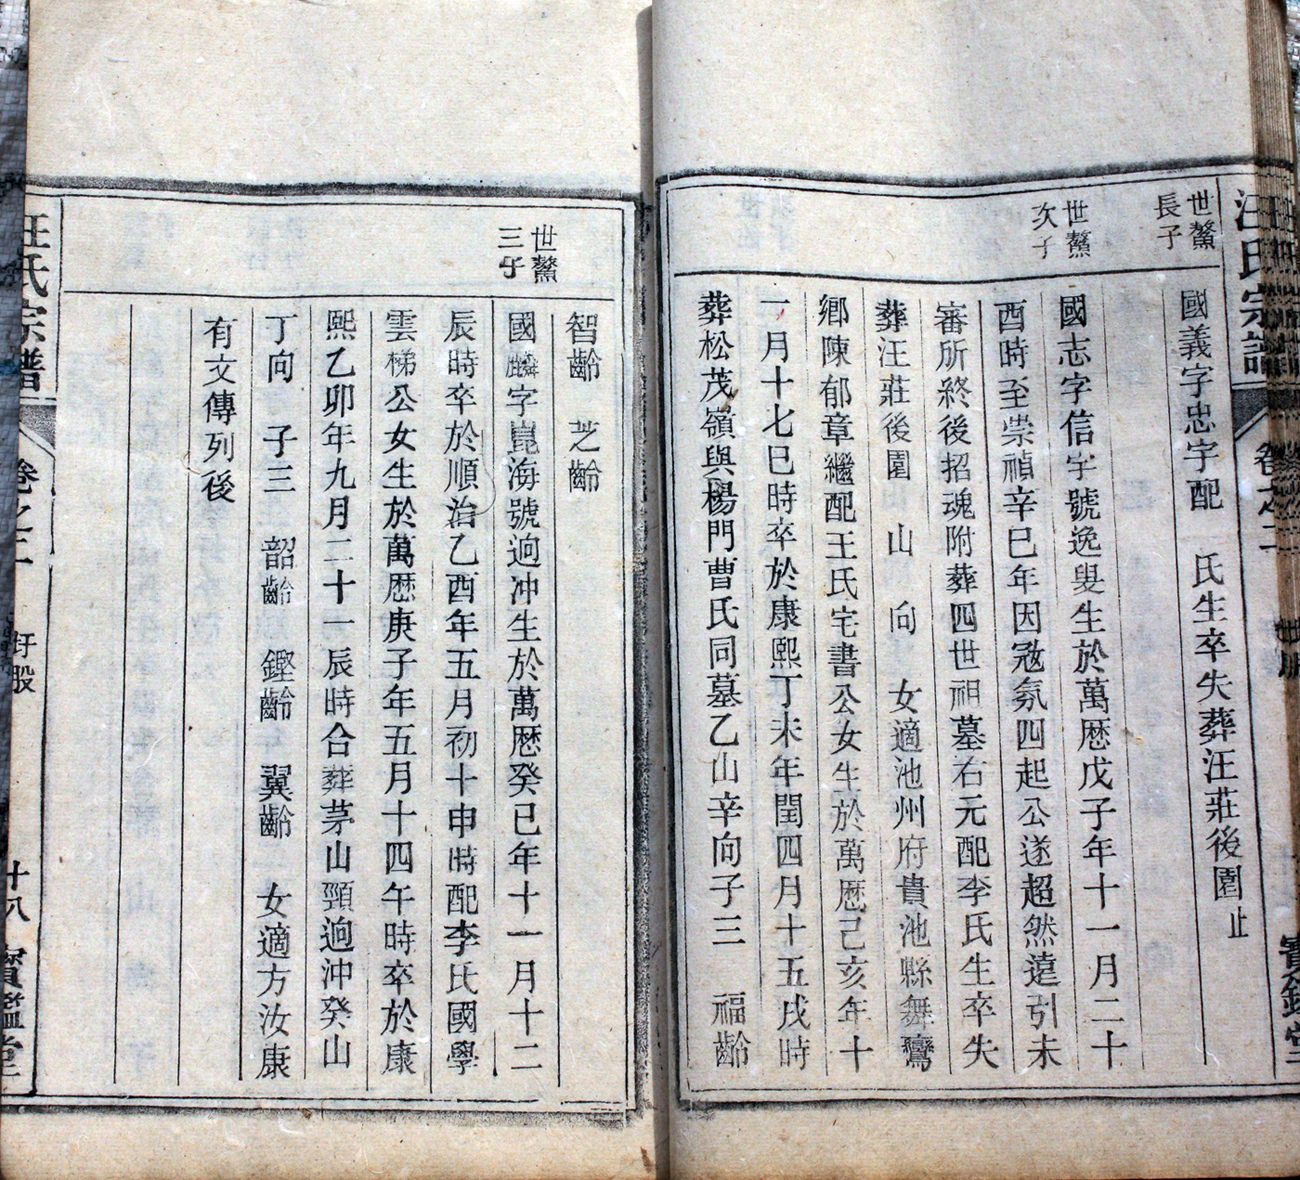 汪氏宗譜
卷之二
寶鑑堂
世鰲
長子
國義字忠宇配　氏生卒失葬汪莊後園止
世鰲
次子
國志字信宇號逸叟生於萬厯戊子年十一月二十
酉時至崇禎辛巳年因冦氛四起公遂超然遠引未
審所終後招魂附葬四世祖墓右元配李氏生卒失
葬汪莊後園　山　向　女適池州府貴池縣舞鸞
鄉陳郁章繼配王氏宅書公女生於萬厯己亥年十
一月十七巳時卒於康熙丁未年閏四月十五戌時
葬松茂嶺與楊門曹氏同墓乙山辛向子三　福齡
智齡　芝齡
世鰲
三子
國麟字崑海號逈冲生於萬厯癸巳年十一月十二
辰時卒於順治乙酉年五月初十申時配李氏國學
雲梯公女生於萬厯庚子年五月十四午時卒於康
熙乙卯年九月二十一辰時合葬茅山頸逈沖癸山
丁向　子三　韶齡　鏗齡　翼齡　女適方汝康
有文傳列後
汪氏宗譜
卷之二
圩股
十八
寶鑑堂